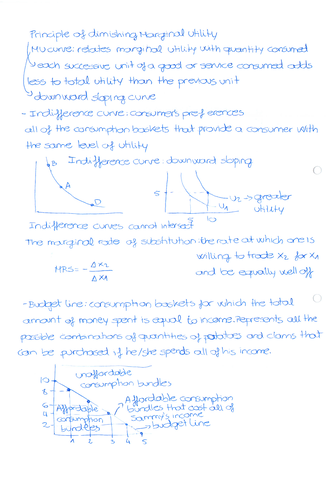 Principle of dimishing Marginal Utility
MU curve: relates marginal utility with quantity consumed
each successive unit of a good or service consumed adds
less to total utility than the previous unit
downward sloping curve
- Indifference curve: consumer's preferences
all of the consumption baskets that provide a consumer with
the same level of utility
Indifference curve: downward sloping
B
A
D
5
5
10
U2 → greater
utility
U1
Indifference curves cannot intersect
The marginal rate of substitution: the rate at which one is
willing to trade x2 for x1
and be equally well off
MRS = - Δx2 / Δx1
- Budget line: consumption baskets for which the total
amount of money spent is equal to income. Represents all the
possible combinations of quantities of potatoes and clams that
can be purchased if he/she spends all of his income.
unaffordable
consumption bundles
10
8
6
4
2
Affordable
consumption
bundles
Affordable consumption
bundles that cost all of
Sammy's income
budget line
1 2 3 4 5